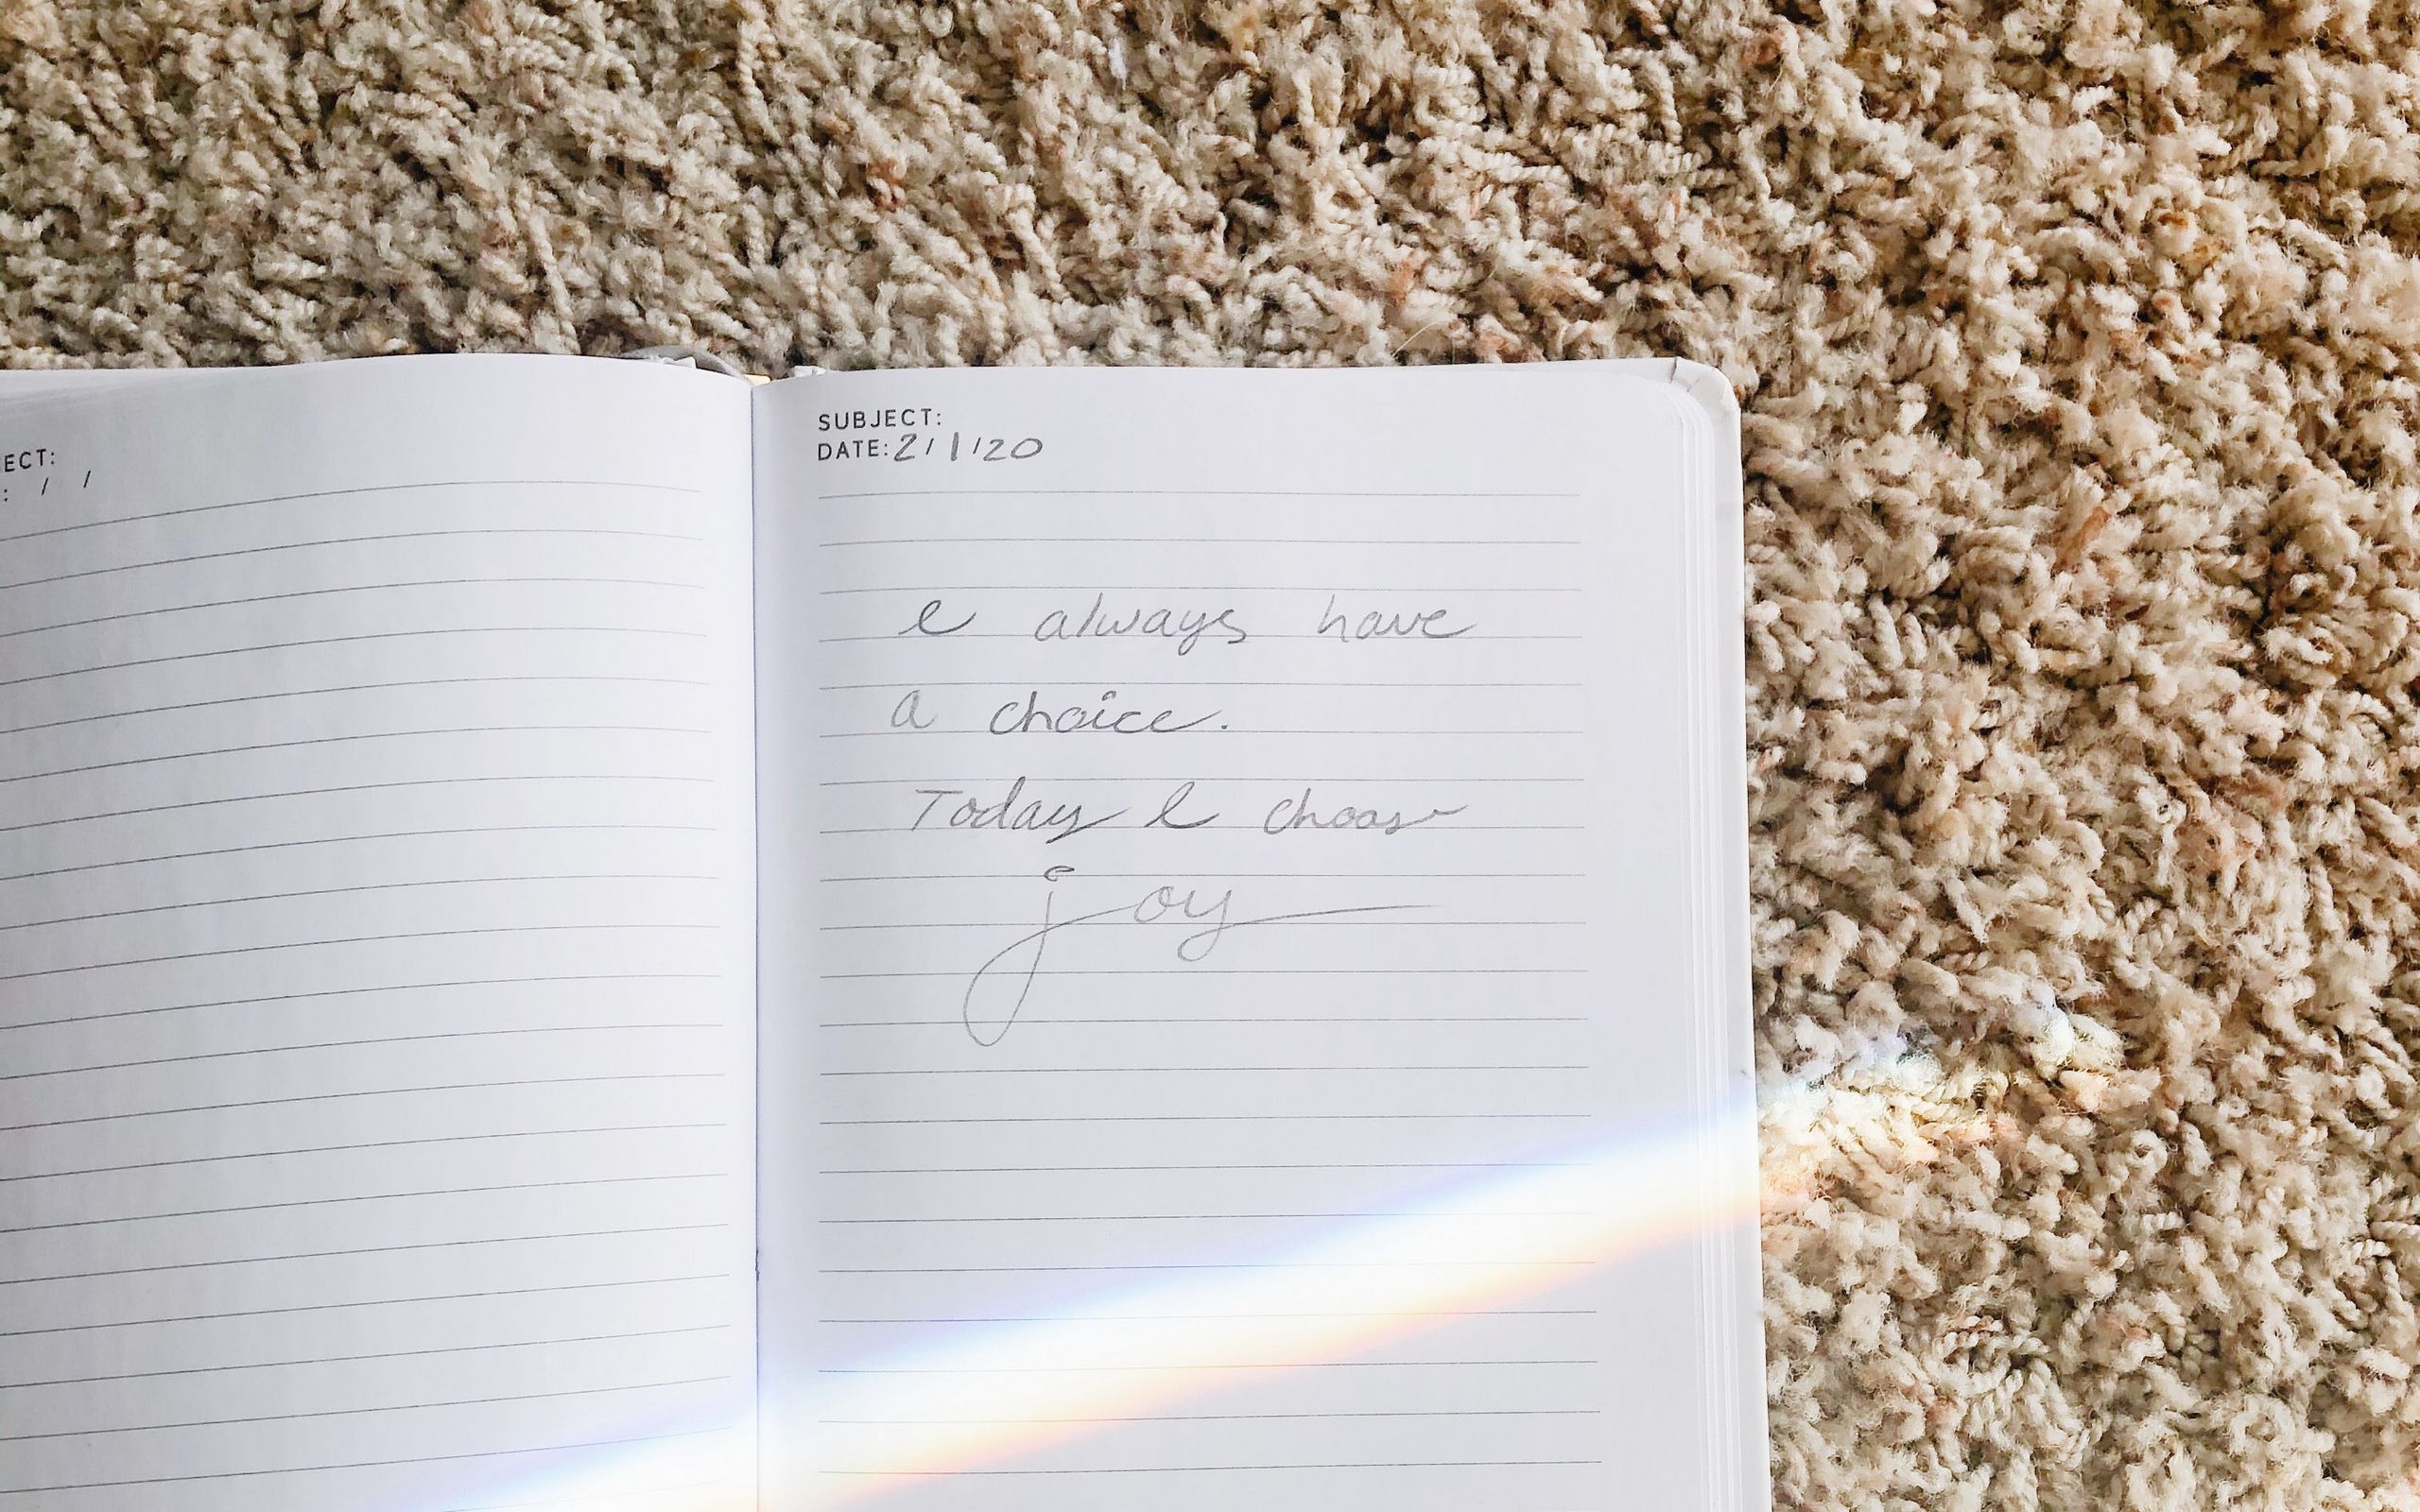 ECT:
: / /
SUBJECT:
DATE: 2/1/20
I always have
a choice.
Today I choose
joy